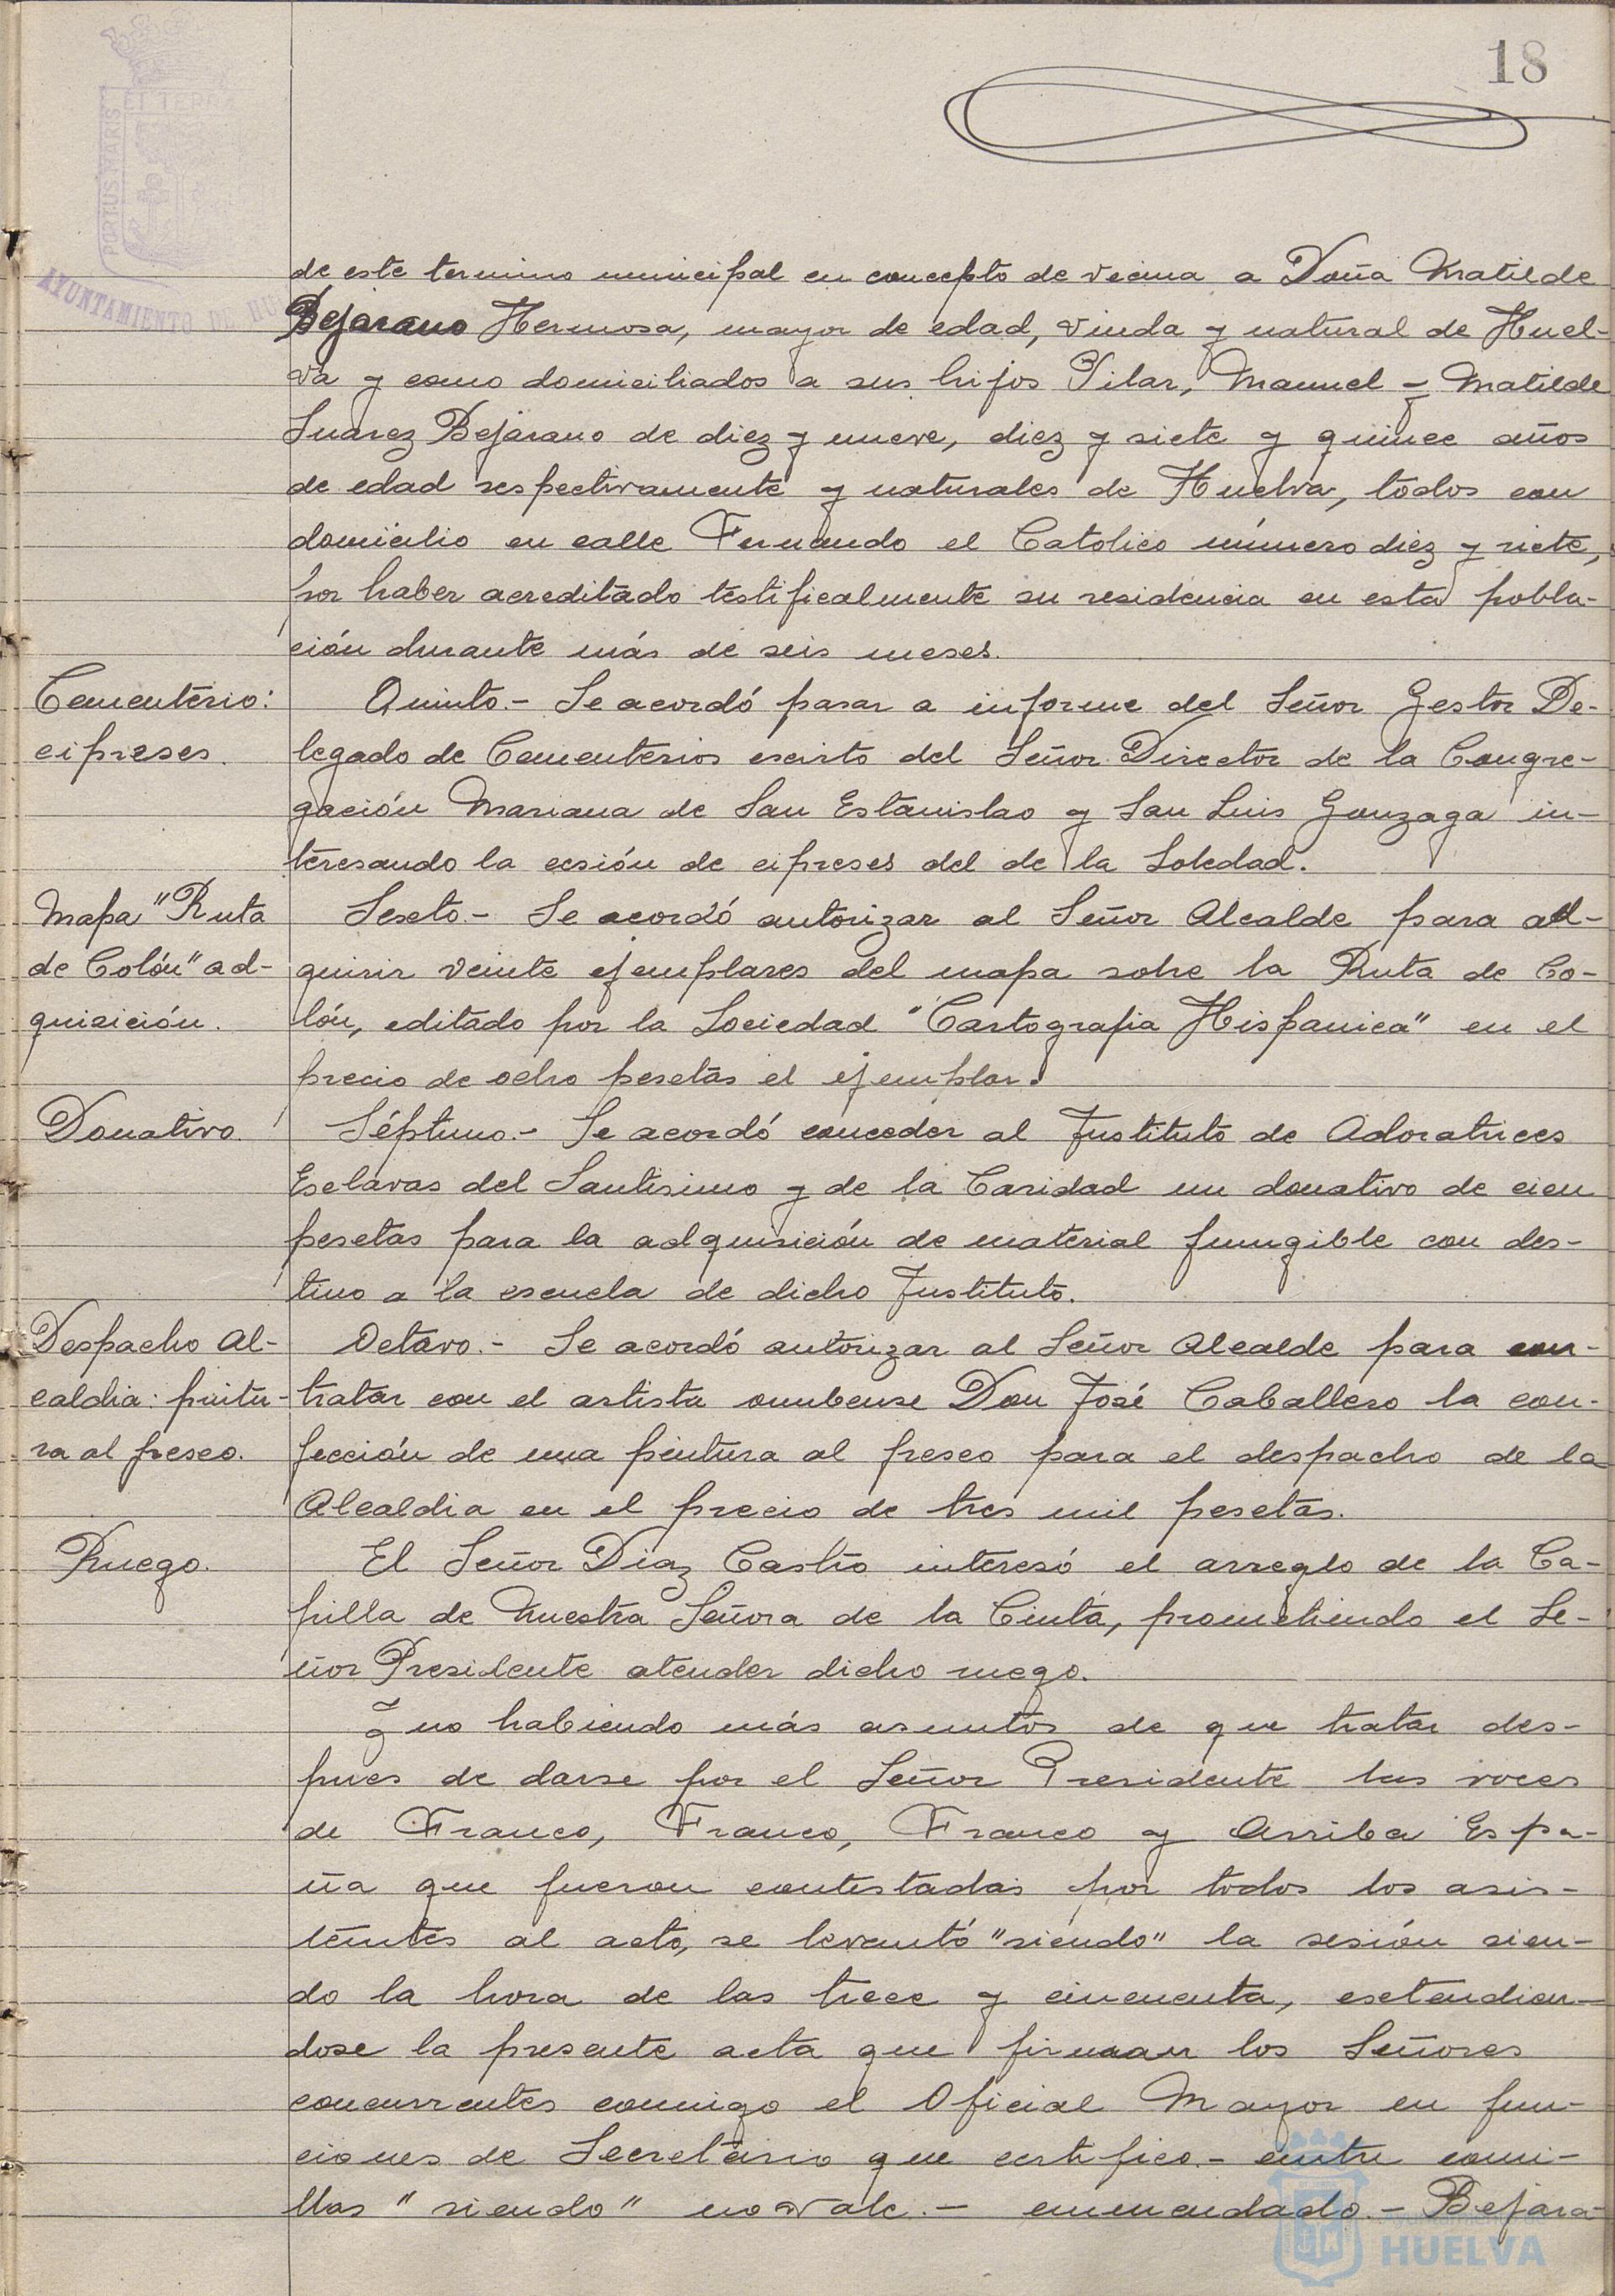 18
PORTUS MARIS
ET TERRA
AYUNTAMIENTO DE HU
de este termino municipal en concepto de vecina a Doña Matilde
Bejarano Hermosa, mayor de edad, viuda y natural de Huel-
va y como domiciliados a sus hijos Pilar, Manuel y Matilde
Suarez Bejarano de diez y nueve, diez y siete y quince años
de edad respectivamente y naturales de Huelva, todos con
domicilio en calle Fernando el Catolico número diez y siete,
por haber acreditado testificalmente su residencia en esta pobla-
ción durante más de seis meses.
Cementerio:
cipreses.
Quinto.- Se acordó pasar a informe del Señor Gestor De-
legado de Cementerios escrito del Señor Director de la Congre-
gación Mariana de San Estanislao y San Luis Gonzaga in-
teresando la cesión de cipreses del de la Soledad.
Mapa "Ruta
de Colón" ad-
quisición.
Sexto.- Se acordó autorizar al Señor Alcalde para ad-
quirir veinte ejemplares del mapa sobre la Ruta de Co-
lón, editado por la Sociedad "Cartografia Hispanica" en el
precio de ocho pesetas el ejemplar.
Donativo.
Séptimo.- Se acordó conceder al Instituto de Adoratrices
Esclavas del Santisimo y de la Caridad un donativo de cien
pesetas para la adquisición de material fungible con des-
tino a la escuela de dicho Instituto.
Despacho Al-
caldia: pintu-
ra al fresco.
Octavo.- Se acordó autorizar al Señor Alcalde para con-
tratar con el artista onubense Don José Caballero la con-
fección de una pintura al fresco para el despacho de la
Alcaldia en el precio de tres mil pesetas.
Ruego.
El Señor Diaz Castro interesó el arreglo de la Ca-
pilla de Nuestra Señora de la Cinta, prometiendo el Se-
ñor Presidente atender dicho ruego.
Y no habiendo más asuntos de que tratar des-
pues de darse por el Señor Presidente las voces
de Franco, Franco, Franco y Arriba Espa-
ña que fueron contestadas por todos los asis-
tentes al acto, se levantó "siendo" la sesión sien-
do la hora de las trece y cincuenta, extendien-
dose la presente acta que firman los Señores
concurrentes conmigo el Oficial Mayor en fun-
ciones de Secretario que certifico.- entre comi-
llas "siendo" no vale.- enmendado.- Bejara-
HUELVA